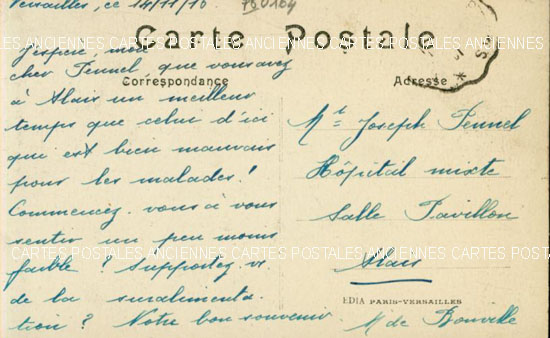 Versailles, ce 14/11/16
780164
Carte Postale
CARTES POSTALES ANCIENNES CARTES POSTALES ANCIENNES CARTES POSTALES ANCIENNES
J'espère, mon
cher Fennel que vous avez
Correspondance
à Alais un meilleur
temps que celui d'ici
qui est bien mauvais
pour les malades!
Commencez-vous à vous
sentir un peu moins
faible? Supportez vs
de la suralimenta-
tion? Notre bon souvenir
M de Bonville
Adresse
Mr Joseph Fennel
Hôpital mixte
Salle Pavillon
CARTES POSTALES ANCIENNES CARTES POSTALES ANCIENNES CARTES POSTALES
Alais
EDIA PARIS-VERSAILLES